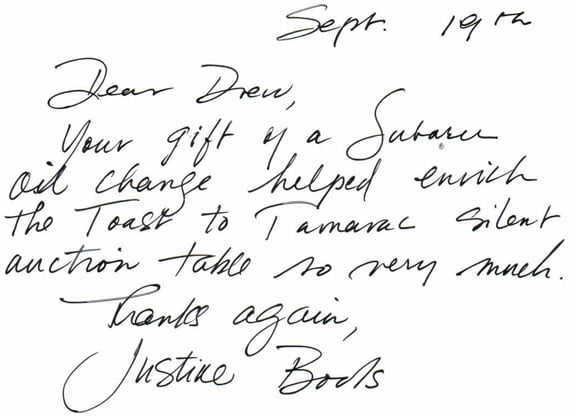 Sept. 19th
Dear Drew,
Your gift of a Subaru
oil change helped enrich
the Toast to Tamarac silent
auction table so very much.
Thanks again,
Justine